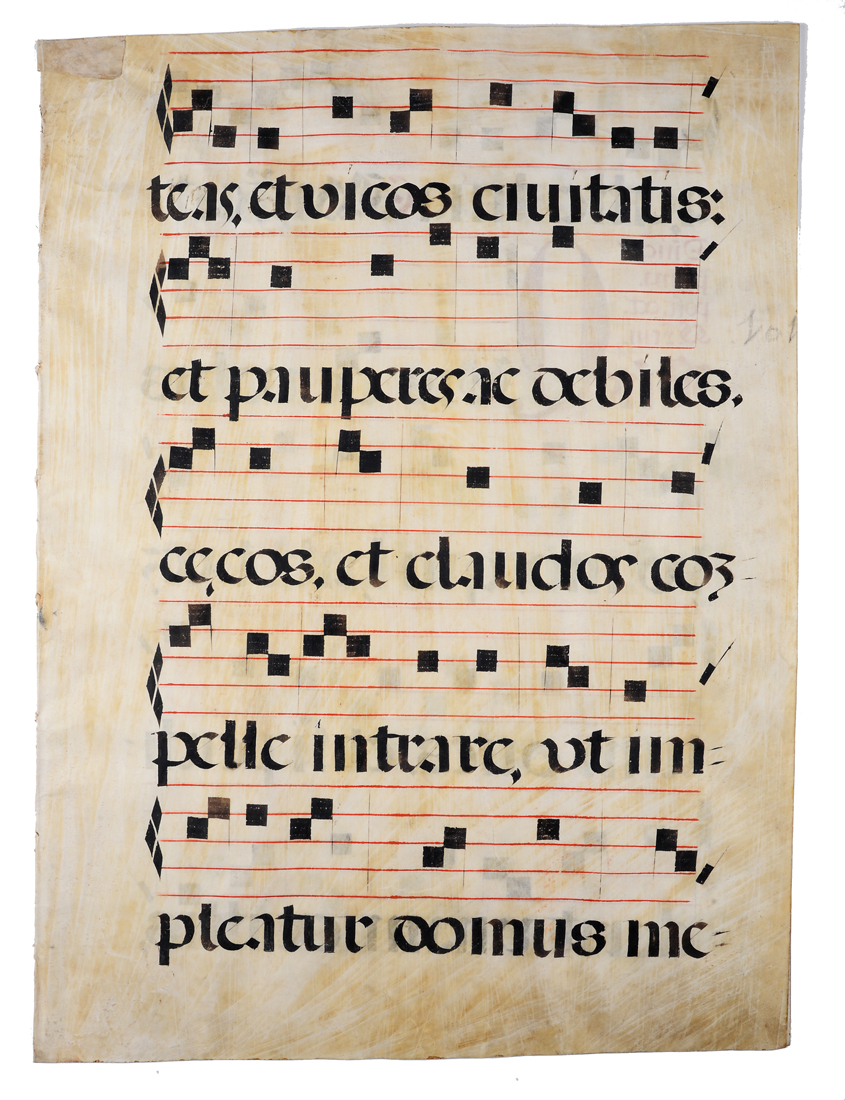 teas, et vicos ciuitatis:
et pauperes ac debiles,
cęcos, et claudos coʒ
pelle intrare, vt im=
pleatur domus me=